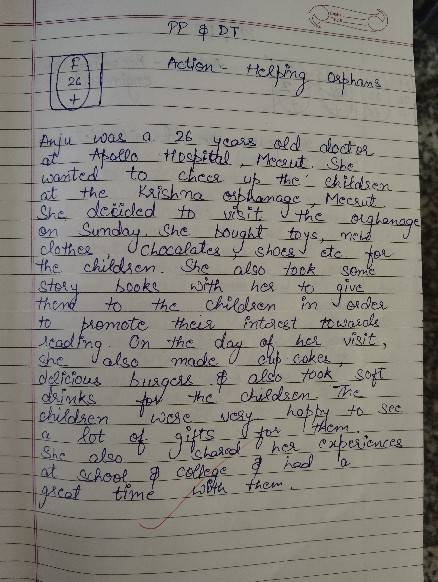 PP & DT
F
26
+
Action - Helping Orphans
Anju was a 26 years old doctor
at Apollo Hospital, Meerut. She
wanted to cheer up the children
at the Krishna orphanage, Meerut
She decided to visit the orghanage
on Sunday. She bought toys, new
clothes, chocalates, shoes etc for
the children. She also took some
story books with her to give
them to the children in order
to promote their interest towards
reading. On the day of her visit,
she also made cup cakes,
delicious burgers & also took soft
drinks for the children. The
children were very happy to see
a lot of gifts for them.
She also shared her experiences
at school & college & had a
great time with them.